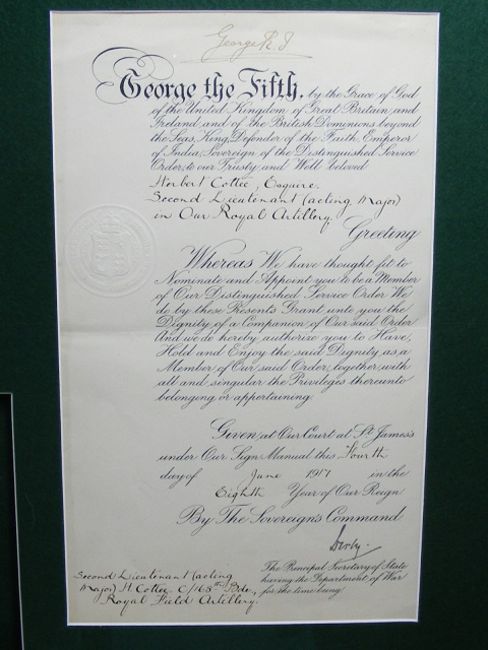 George R I
George the Fifth, by the Grace of God
of the United Kingdom of Great Britain and
Ireland and of the British Dominions beyond
the Seas, King, Defender of the Faith, Emperor
of India, Sovereign of the Distinguished Service
Order, to our Trusty and Well beloved
Norbert Cottee, Esquire,
Second Lieutenant (acting Major)
in Our Royal Artillery.
Greeting
Whereas We have thought fit to
Nominate and Appoint you to be a Member
of Our Distinguished Service Order We
do by these Presents Grant unto you the
Dignity of a Companion of Our said Order
And we do hereby authorize you to Have,
Hold and Enjoy the said Dignity as a
Member of Our said Order, together with
all and singular the Privileges thereunto
belonging or appertaining.
Given at Our Court at St. James's
under Our Sign Manual this Fourth
day of June 1917 in the
Eighth Year of Our Reign
By The Sovereign's Command
Derby.
The Principal Secretary of State
having the Department of War
for the time being.
Second Lieutenant (acting
Major) H Cottee. C/168th Bde,
Royal Field Artillery.